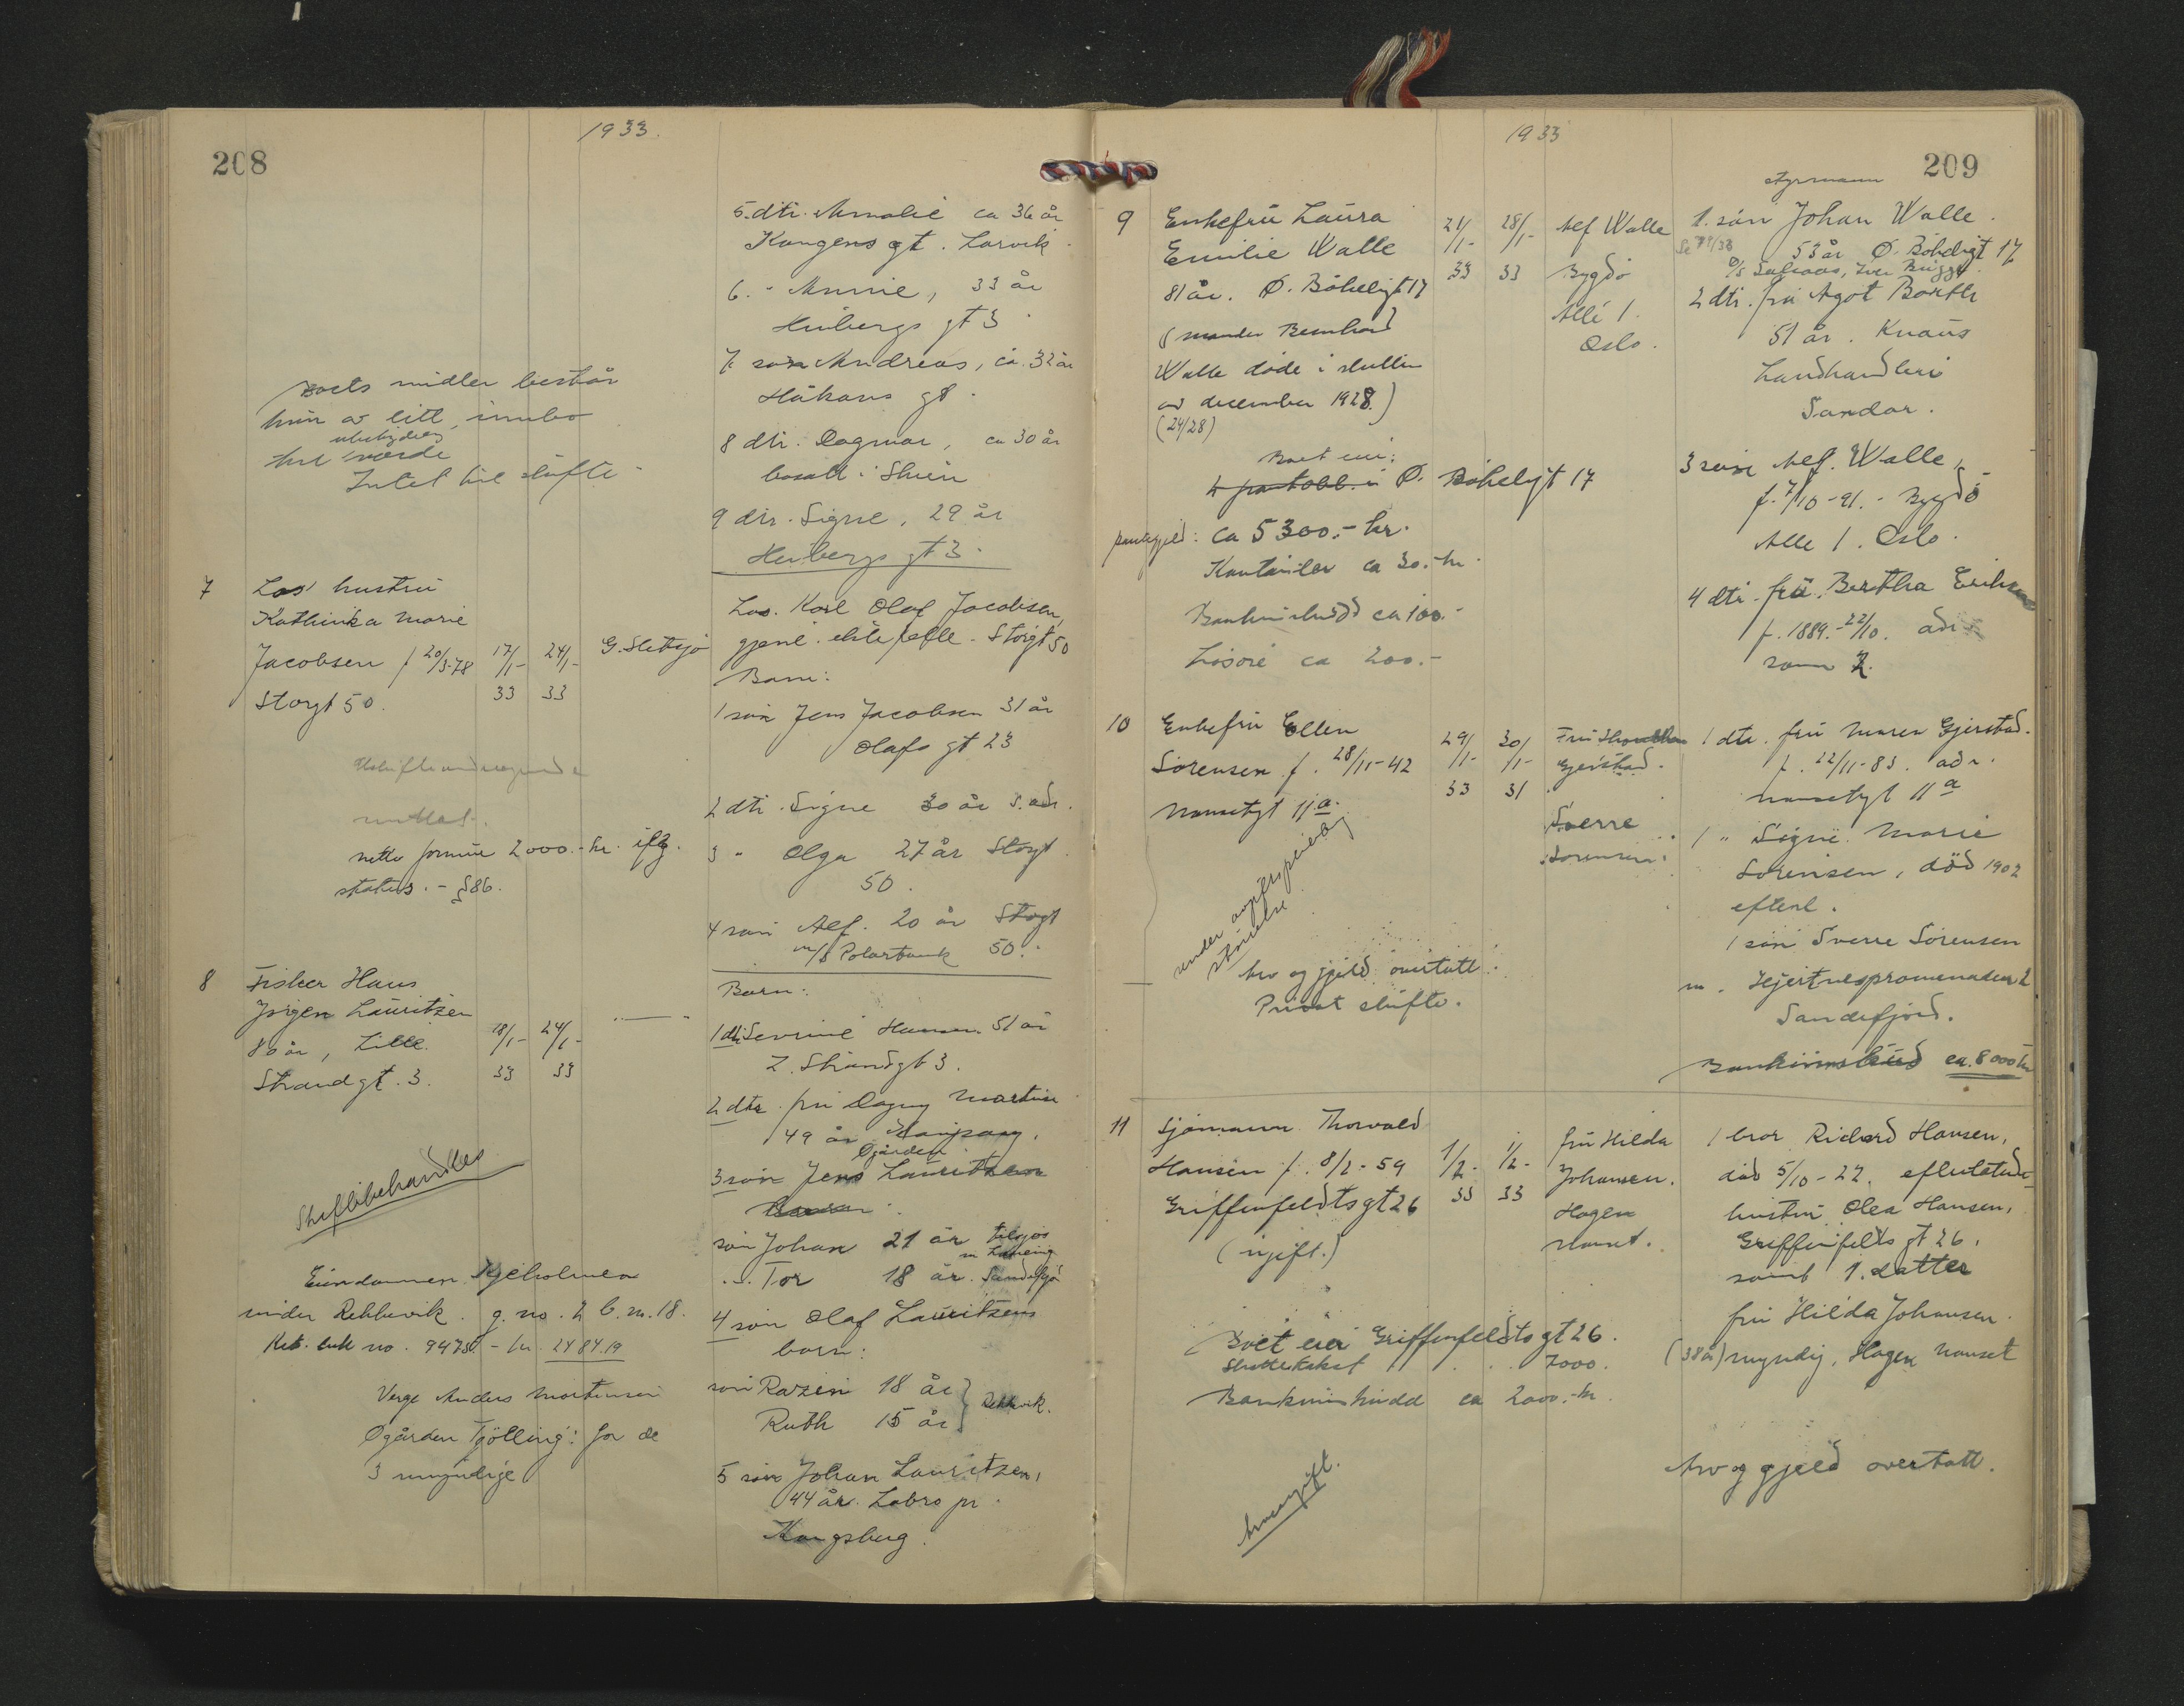 208
1933.
5. dtr. Amalie ca 36 år
Kongens gt. Larvik.
6. " Annie, 33 år
Heibergs gt 3
7. søn Andreas, ca. 32 år
Håkons gt.
8 dtr. Dagmar, ca 30 år
bosatt i Skien
9 dtr. Signe, 29 år
Heibergs gt 3.
Boets midler består
kun av litt innbo
ubetydelig
verde
Intet til skifte
7
Los' hustru
Kathinka Marie
Jacobsen f 20/3-78
Storgt 50.
17/1- 33
24/1- 33
G. Sletsjø
Los. Karl Olaf Jacobsen,
gjenl. ektefelle. Storgt 50
Barn:
1 søn Jens Jacobsen 31 år
Olafs gt 23
2 dtr. Signe 30 år s. adr.
3 " Olga 27 år Storgt
50.
4 søn Alf. 20 år Storgt
m/s Polartank 50.
netto formue 2000.- kr. iflg.
status. - §86.
8
Fisker Hans
Jørgen Lauritzen
80 år, Lille
Strandgt. 3.
18/1- 33
24/1- 33
Barn:
1 dtr Sevrine Hansen 51 år
L. Strandgt 3.
2 dtr. fru Dagny Martinsen
49 år
Øgården
3 søn Jens Lauritzen
søn Johan 21 år tilsjøs
... Tor 18 år.
4 søn Olaf Lauritzens
barn:
søn 18 år
Ruth 15 år
Rekkevik.
5 søn Johan Lauritzen,
44 år. Labro pr.
Kongsberg.
Skiftebehandles
Eiendommen
under Rekkevik. g. no. 2 b. no. 18.
no. 9475 - kr. 2484.19
Verge Anders Mortensen
Øgården Tjølling: for de
3 umyndige
1933
209
Styrmann
9
Enkefru Laura
Emilie Walle
81 år. Ø. Bøkeligt 17
(mannen Bernhard
Walle døde i slutten
av december 1928.)
(24/28)
21/1- 33
28/1- 33
Alf Walle
Bygdø
Allé 1.
Oslo.
1. søn Johan Walle.
53 år Ø. Bøkeligt 17
2 dtr. fru Agot
51 år. Knaus
Landhandleri
Sandar.
3 søn Alf. Walle,
f. 7/10-91. - Bygdø
Alle 1. Oslo.
4 dtr. fru. Bertha Eriksen
f. 1889.-22/10. adr.
som 2.
Boet eier:
Ø. Bøkeligt 17
pantegjeld: ca 5300.- kr.
Kontanter ca 30.- kr.
Bankinnskudd ca 100.-
Løsøre ca 200.-
10
Enkefru Ellen
Sørensen f. 28/11-42
Nansetgt 11 a.
29/1- 33
30/1- 31
Fru
Gjerstad.
Sverre
Sørensen.
1 dtr. fru Maren Gjerstad.
f. 22/11-83. adr.
Nansetgt 11 a
1 " Signe Marie
Sørensen, død 1902
efterl.
1 søn Sverre Sørensen
Hjertnespromenaden 2
Sandefjord.
Bankinnskud ca. 8000 kr
under
Arv og gjeld overtatt.
Privat skifte.
11
Sjømann Thorvald
Hansen f. 8/2-59
Griffenfeldtsgt 26
(ugift.)
1/2- 33
1/2- 33
fru Hilda
Johansen.
Hagen
Nanset.
1 bror Richard Hansen,
død 5/10-22. efterlatende
hustru Olea Hansen,
Griffenfelds gt 26,
samt 1. datter
fru Hilda Johansen.
(38 år) myndig, Hagen Nanset
Boet eier Griffenfeldtsgt 26.
Skattetakst 7000.
Bankinnskudd ca 2000.- kr.
Arveavgift.
Arv og gjeld overtatt.